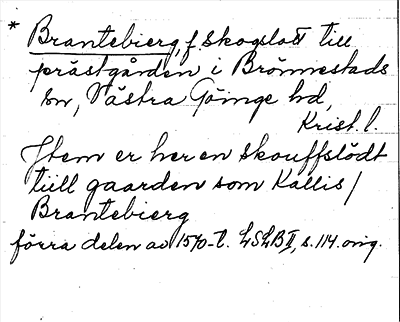 * Brantebierg, f. skogslott till
prästgården i Brönnestads
sn, Västra Göinge hd,
Krist. l.
Jtem er her en skouffslödt
tiill gaarden som Kallis /
Brantebierg
förra delen av 1570-t. LSLB II, s. 114. orig.